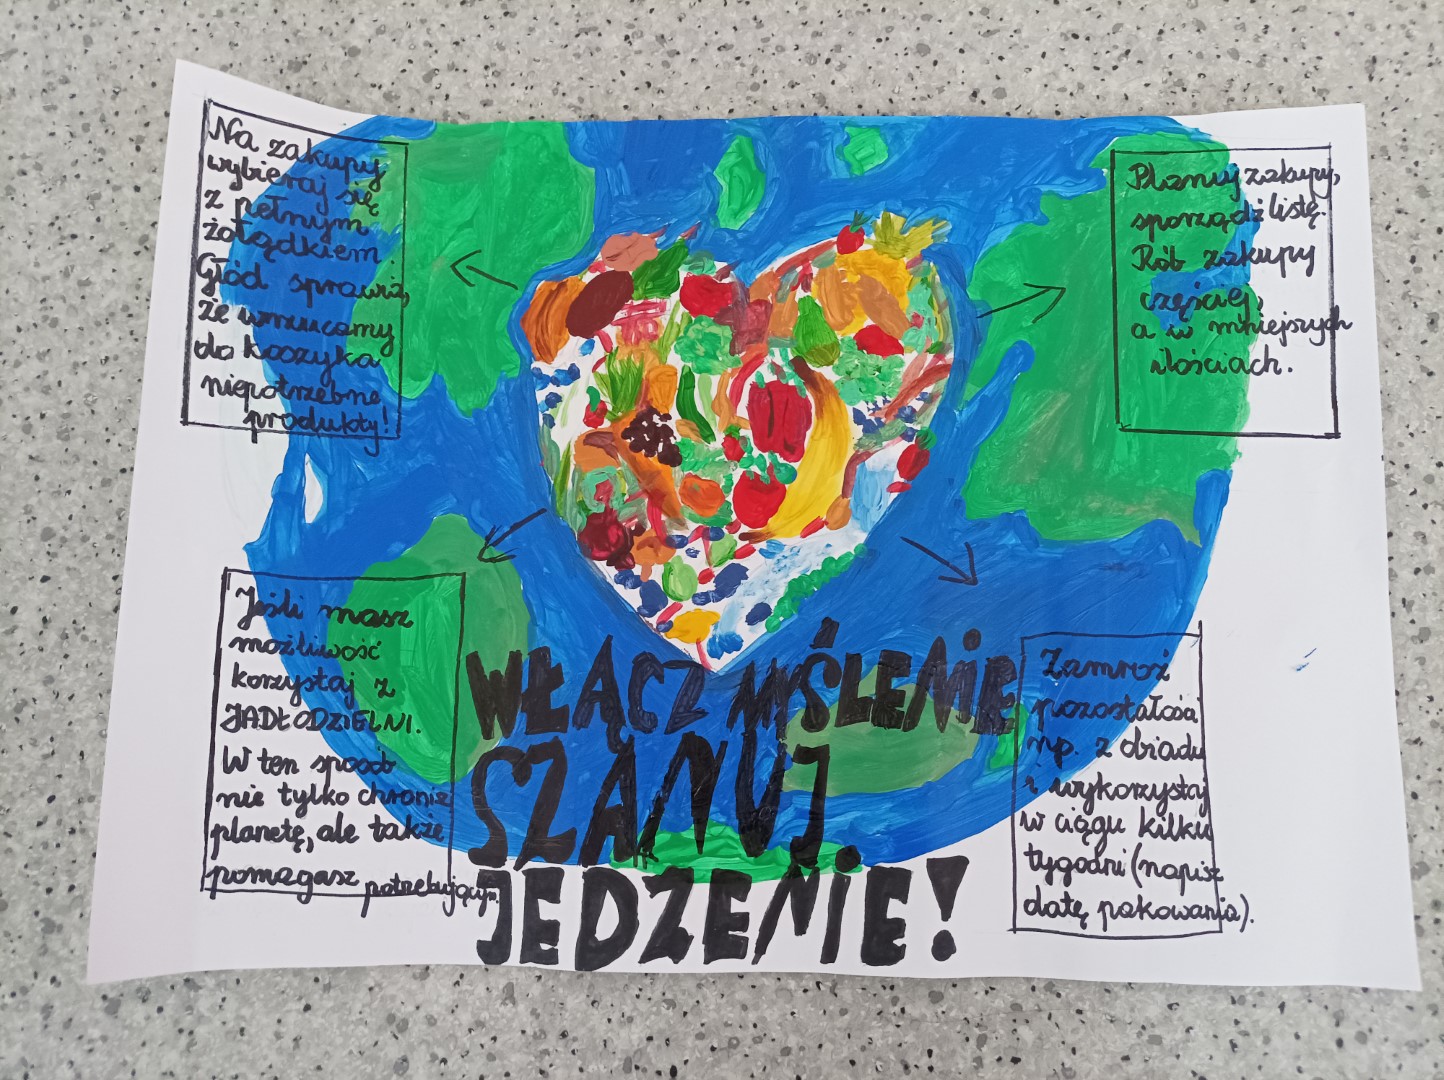 Na zakupy
wybieraj się
z pełnym
żołądkiem
Głód sprawia,
że wrzucamy
do koszyka
niepotrzebne
produkty!
Planuj zakupy,
sporządź listę.
Rób zakupy
częściej,
a w mniejszych
ilościach.
Jeśli masz
możliwość
korzystaj z
JADŁODZIELNI.
W ten sposób
nie tylko chronisz
planetę, ale także
pomagasz potrzebującym.
Zamroź
pozostałości
np. z obiadu
i wykorzystaj
w ciągu kilku
tygodni (napisz
datę pakowania).
WŁĄCZ MYŚLENIE
SZANUJ
JEDZENIE!